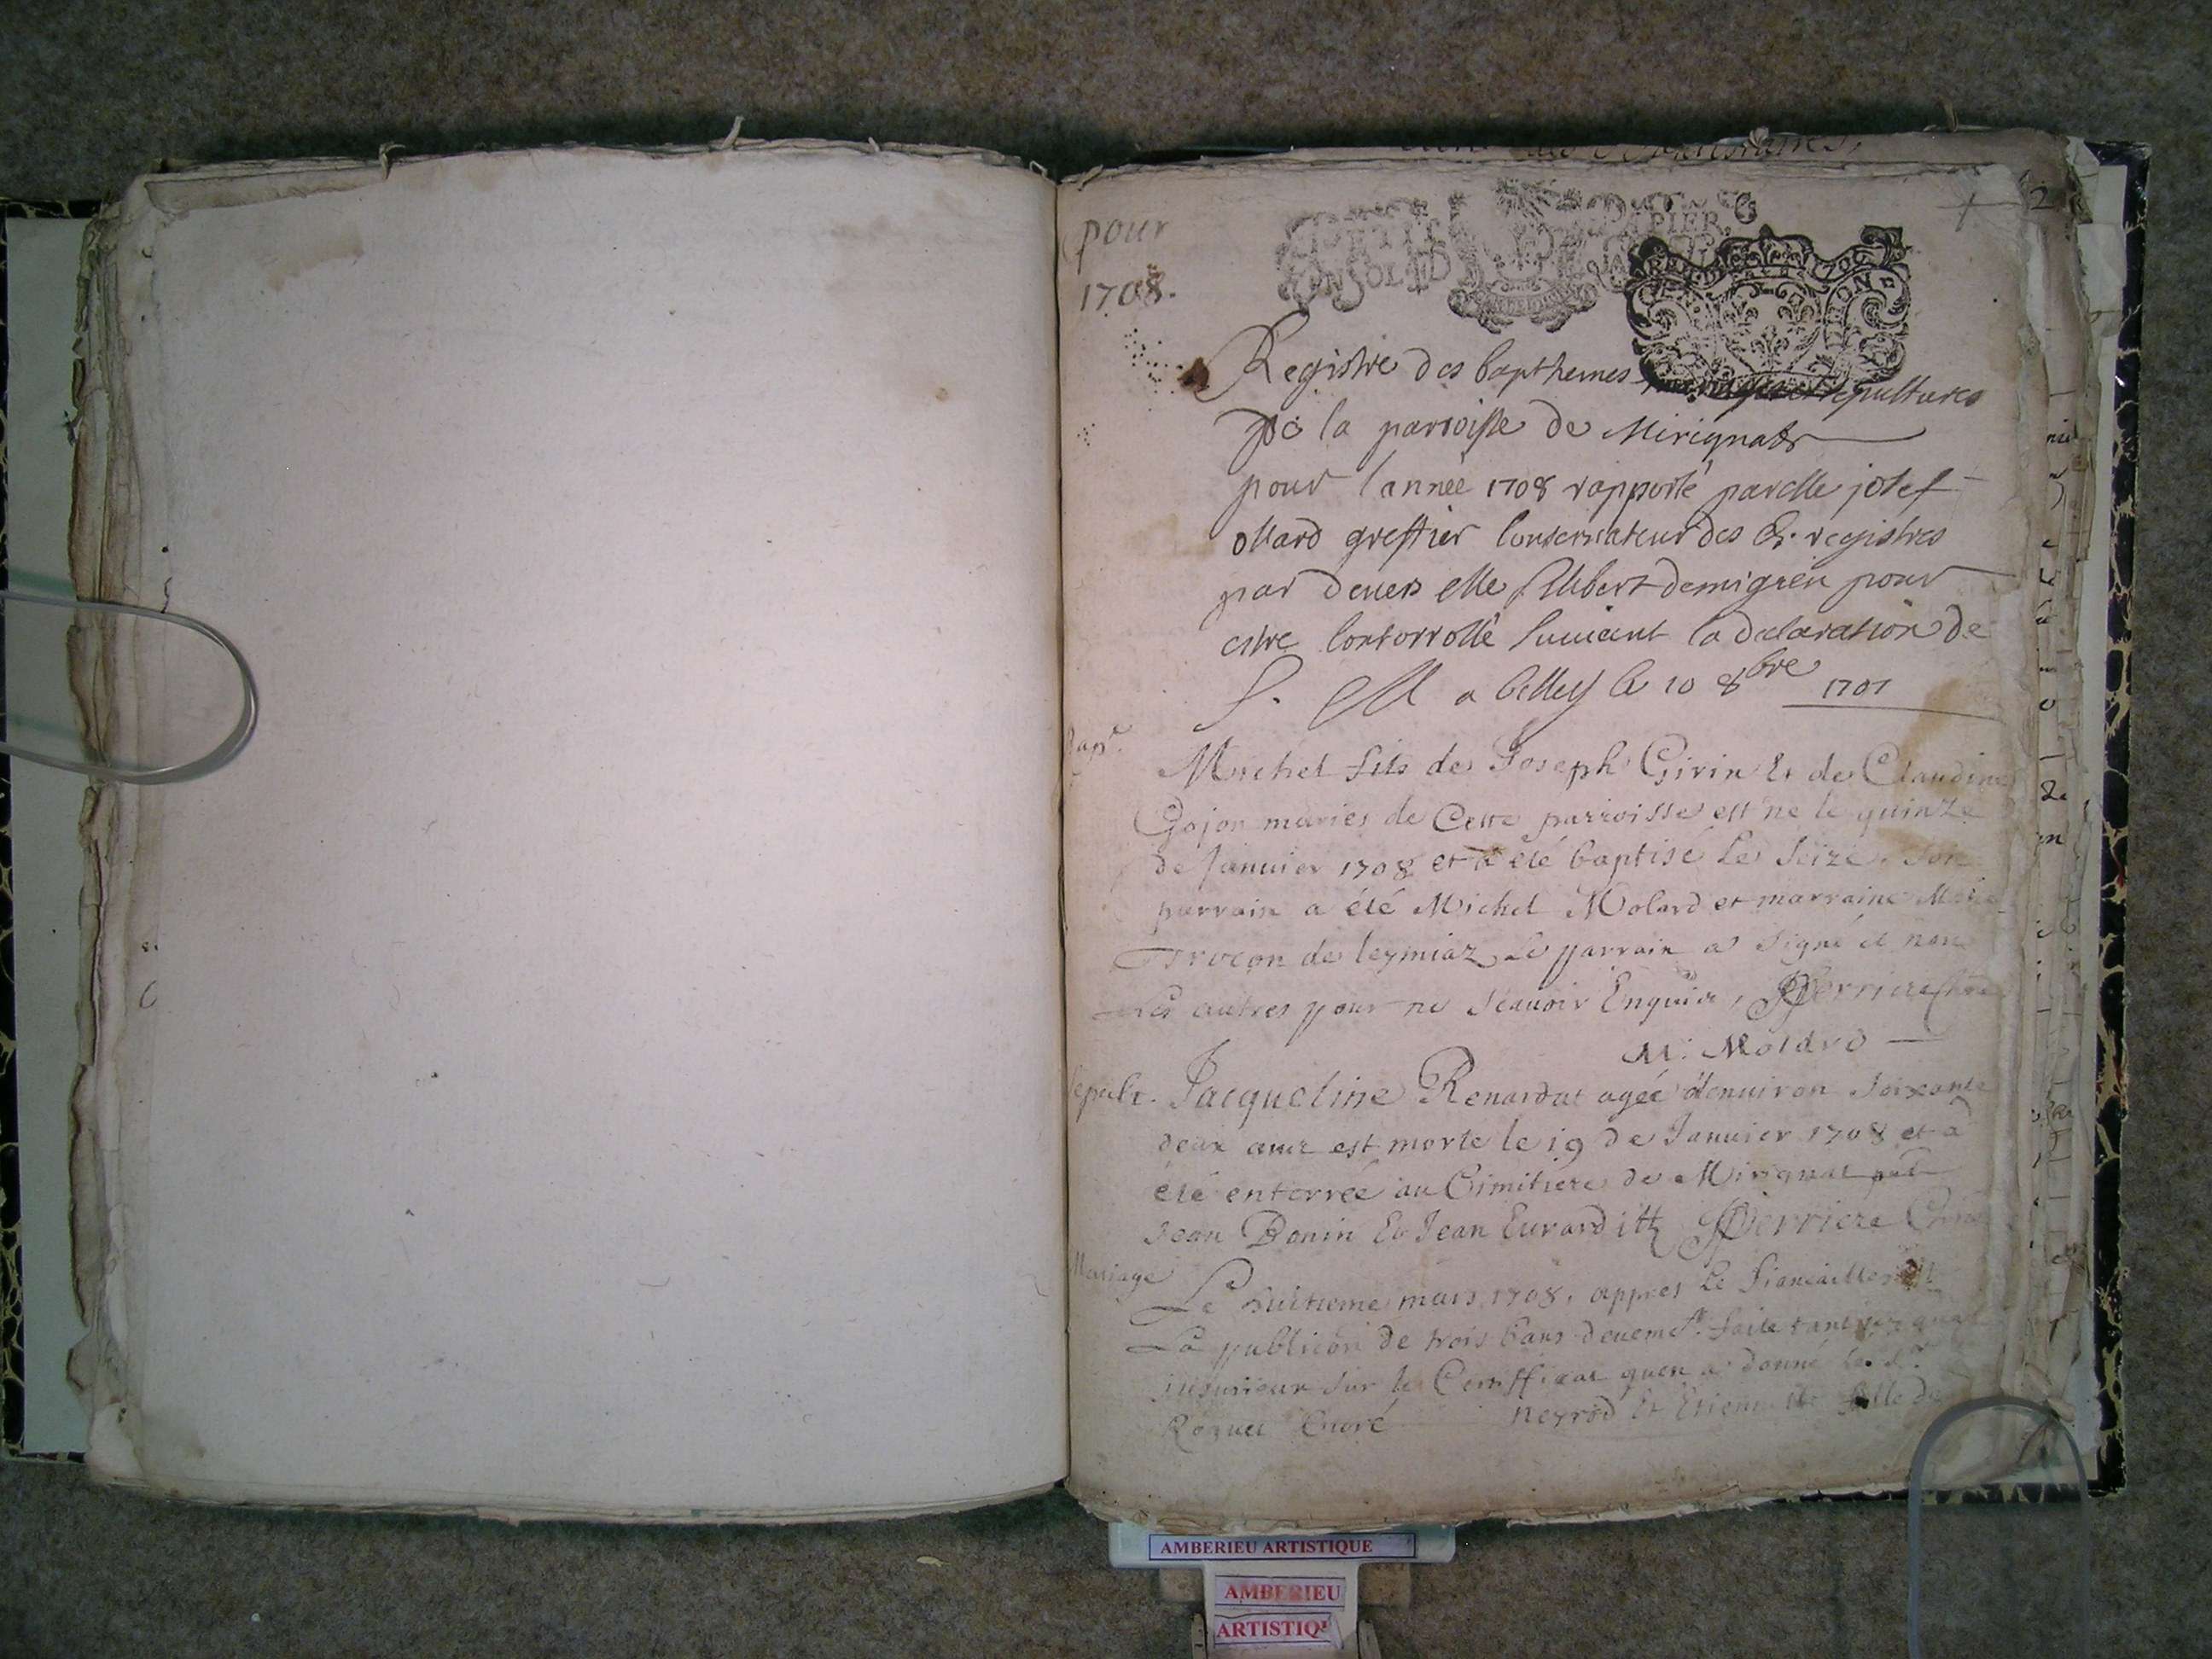 pour
1708.
2
PETIT PAPIER
UN SOL
Registre des bapthemes sepultures
De la parroisse de Mirignat
pour l'année 1708 rapporté par Me josef
ollard greffier Conservateur des registres
par devers Me pour
estre Contorrollé suivant la declaration de
S. M a belley le 10 8bre 1707
Bap.
Michel fils de Joseph Girin & de Claudine
Gojon mariés de Cette parroisse est né le quinze
de Januier 1708 et a été baptisé le seize. son
parrain a été Michel Molard et marraine
de leymiaz le parrain a signé et non
les autres pour ne scauoir Enquis, Perriere
M. Molard
sepult. Jacqueline Renardat agée denuiron soixante
deux ans est morte le 19 de Januier 1708 et a
été enterrée au Cimitiere de Mirignat
Jean Bonin & Jean Eurard Perriere
Mariage
Le huitieme mars 1708. appres Le fiancailles
La publicon de trois bans deuemt. faite
sur le Certifficat quen a donné le Sr.
Curé neyrod Et fille de
AMBERIEU ARTISTIQUE
AMBERIEU
ARTISTIQ